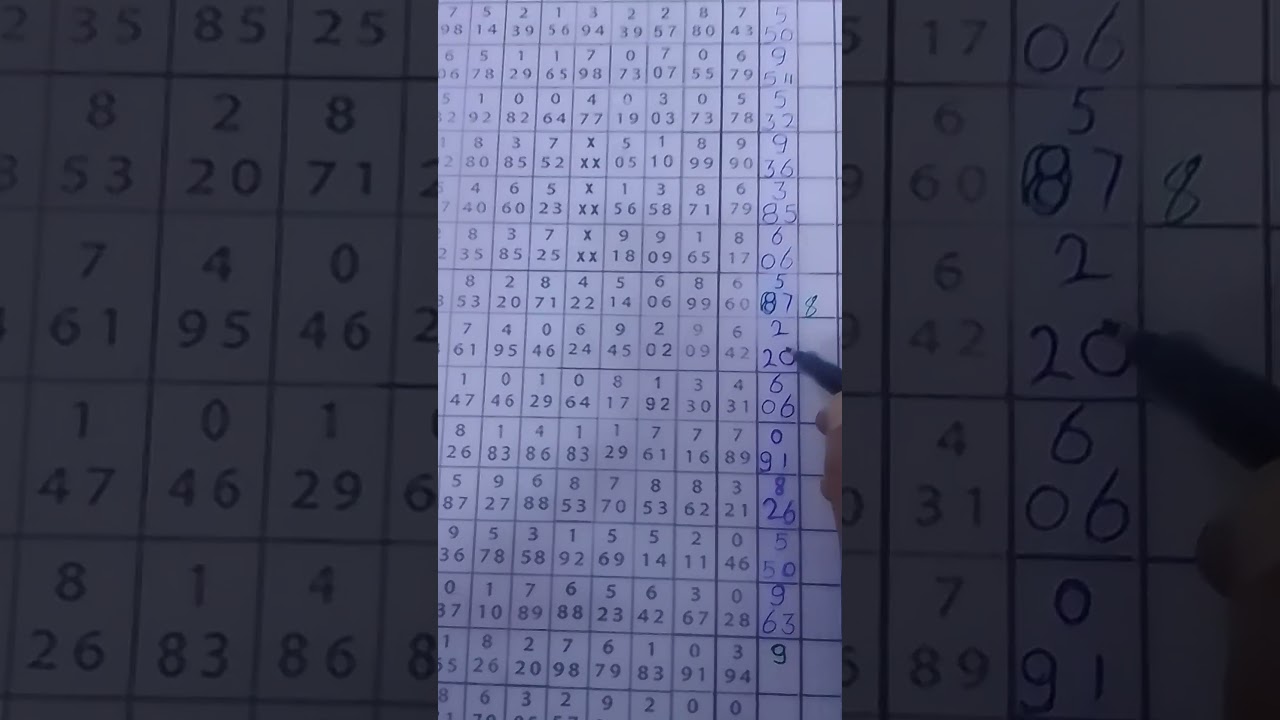 7 5 2 1 3 2 2 8 7 5
98 14 39 56 94 39 57 80 43 50
6 5 1 1 7 0 7 0 6 9
06 78 29 65 98 73 07 55 79 54
5 1 0 0 4 0 3 0 5 5
2 92 82 64 77 19 03 73 78 32
8 3 7 X 5 1 8 9 9
2 80 85 52 XX 05 10 99 90 36
4 6 5 X 1 3 8 6 3
7 40 60 23 XX 56 58 71 79 85
8 3 7 X 9 9 1 8 6
2 35 85 25 XX 18 09 65 17 06
8 2 8 4 5 6 8 6 5
3 53 20 71 22 14 06 99 60 87 8
7 4 0 6 9 2 9 6 2
61 95 46 24 45 02 09 42 20
1 0 1 0 8 1 3 4 6
47 46 29 64 17 92 30 31 06
8 1 4 1 1 7 7 7 0
26 83 86 83 29 61 16 89 91
5 9 6 8 7 8 8 3 8
87 27 88 53 70 53 62 21 26
9 5 3 1 5 5 2 0 5
36 78 58 92 69 14 11 46 50
0 1 7 6 5 6 3 0 9
37 10 89 88 23 42 67 28 63
1 8 2 7 6 1 0 3 9
55 26 20 98 79 83 91 94
8 6 3 2 9 2 0 0